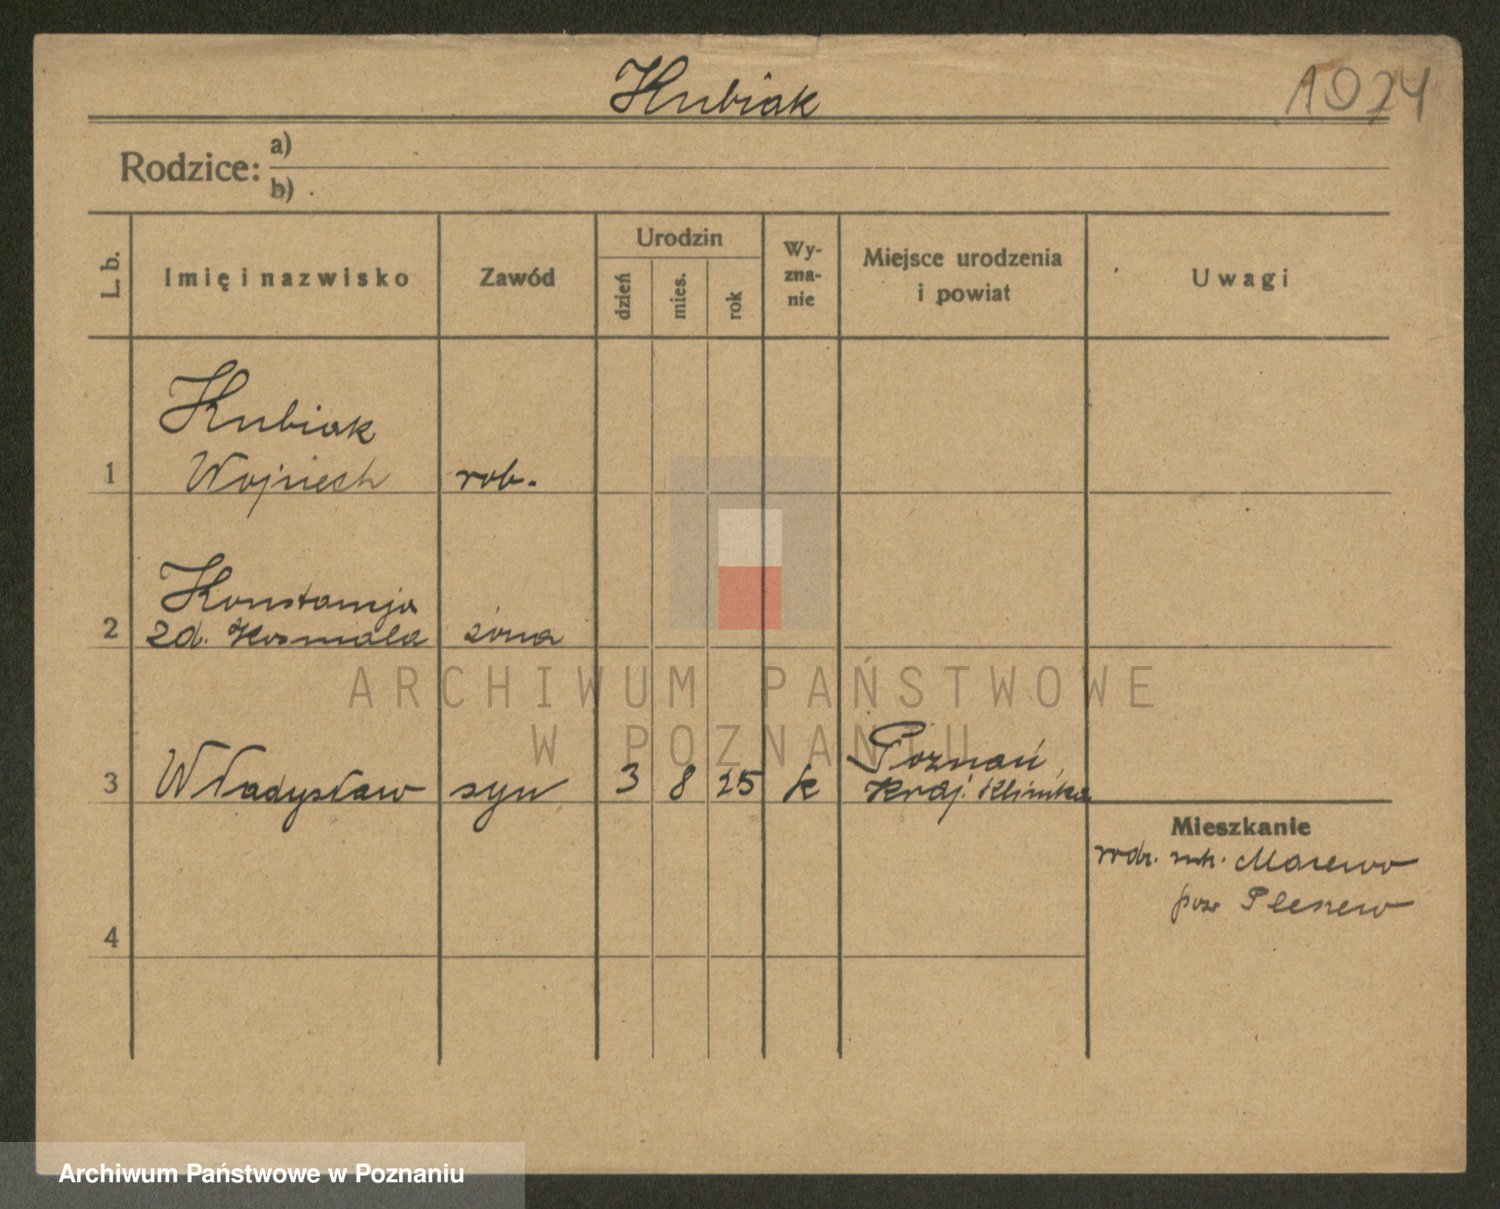 Kubiak
1024
Rodzice: a)
b)
L. b.
Imię i nazwisko
Zawód
Urodzin
dzień
mies.
rok
Wy-
zna-
nie
Miejsce urodzenia
i powiat
Uwagi
Kubiak
1 Wojciech rob.
Konstancja
2 zd. Kosmala żona
3 Władysław syn 3 8 25 k Poznań
Kraj. Klinika
Mieszkanie
Marewo
pow Pleszew
4
ARCHIWUM PAŃSTWOWE
W POZNANIU
Archiwum Państwowe w Poznaniu